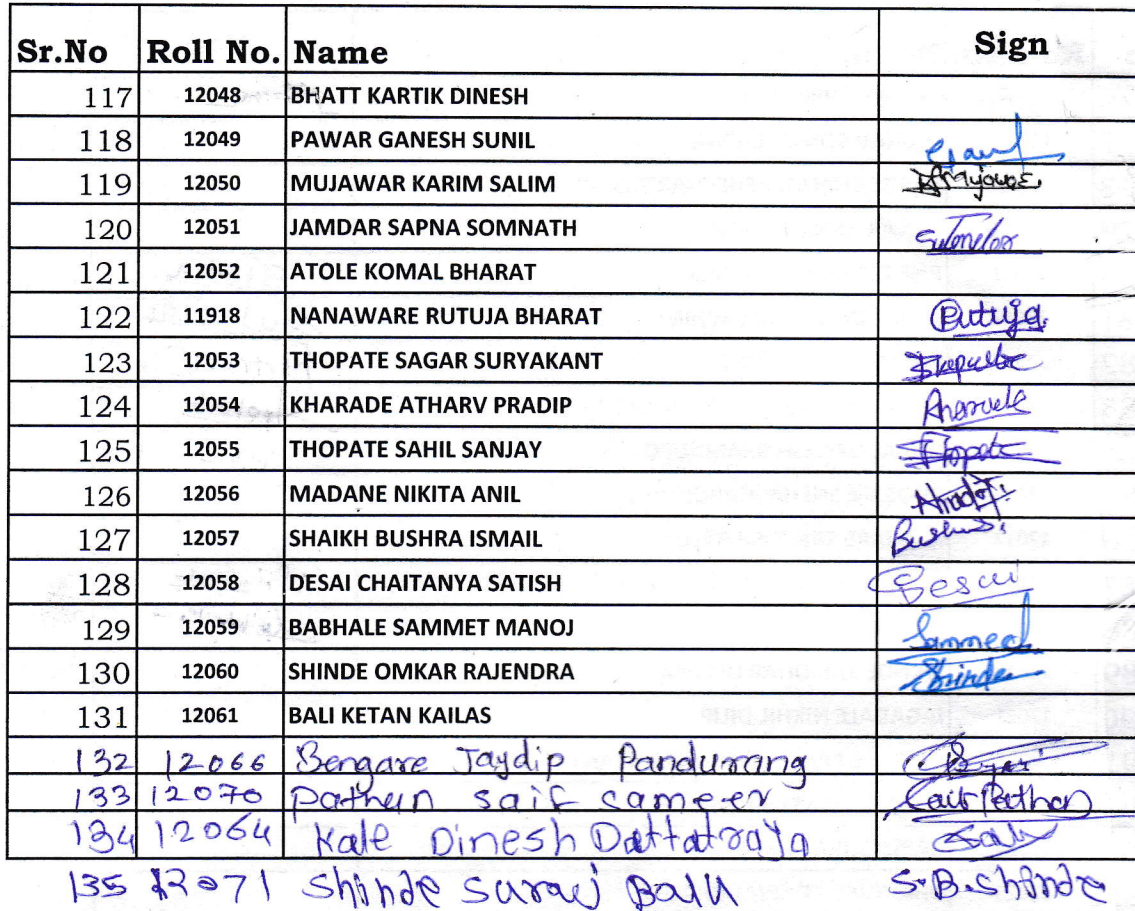 Sr.No Roll No. Name Sign
117 12048 BHATT KARTIK DINESH
118 12049 PAWAR GANESH SUNIL
119 12050 MUJAWAR KARIM SALIM
120 12051 JAMDAR SAPNA SOMNATH
121 12052 ATOLE KOMAL BHARAT
122 11918 NANAWARE RUTUJA BHARAT Rutuja.
123 12053 THOPATE SAGAR SURYAKANT
124 12054 KHARADE ATHARV PRADIP
125 12055 THOPATE SAHIL SANJAY Thopate
126 12056 MADANE NIKITA ANIL
127 12057 SHAIKH BUSHRA ISMAIL
128 12058 DESAI CHAITANYA SATISH Desai
129 12059 BABHALE SAMMET MANOJ Sammed
130 12060 SHINDE OMKAR RAJENDRA Shinde
131 12061 BALI KETAN KAILAS
132 12066 Bengare Jaydip Pandurang
133 12070 Pathan saif sameer Saif Pathan
134 12064 Kale Dinesh Dattatraya
135 12071 Shinde Suraj Balu S.B.Shinde